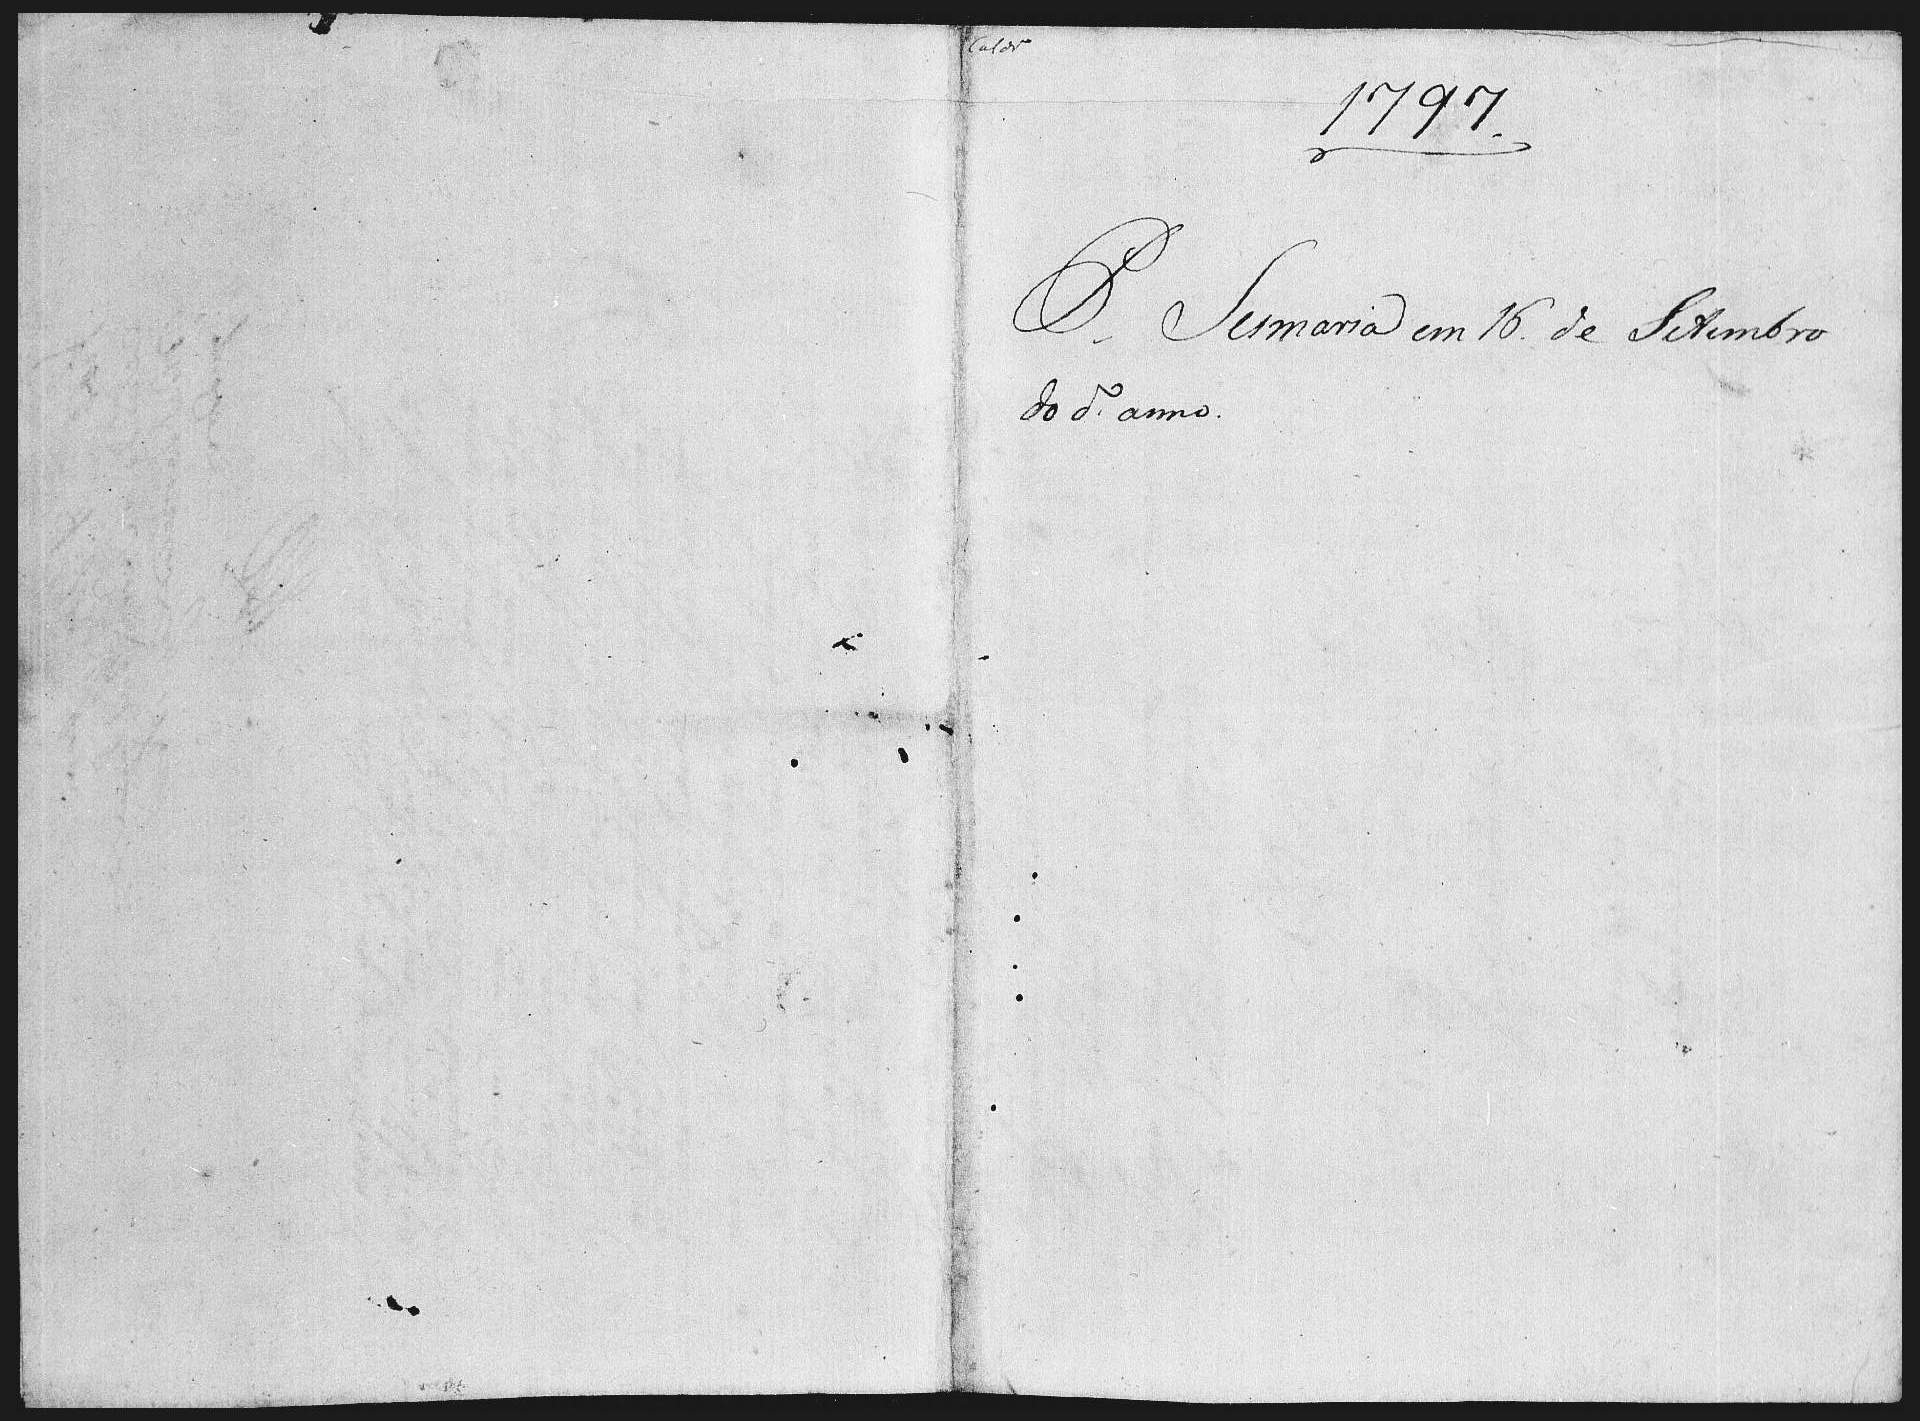 1797.
P. Sesmaria em 16. de Setembro
do d.º anno.